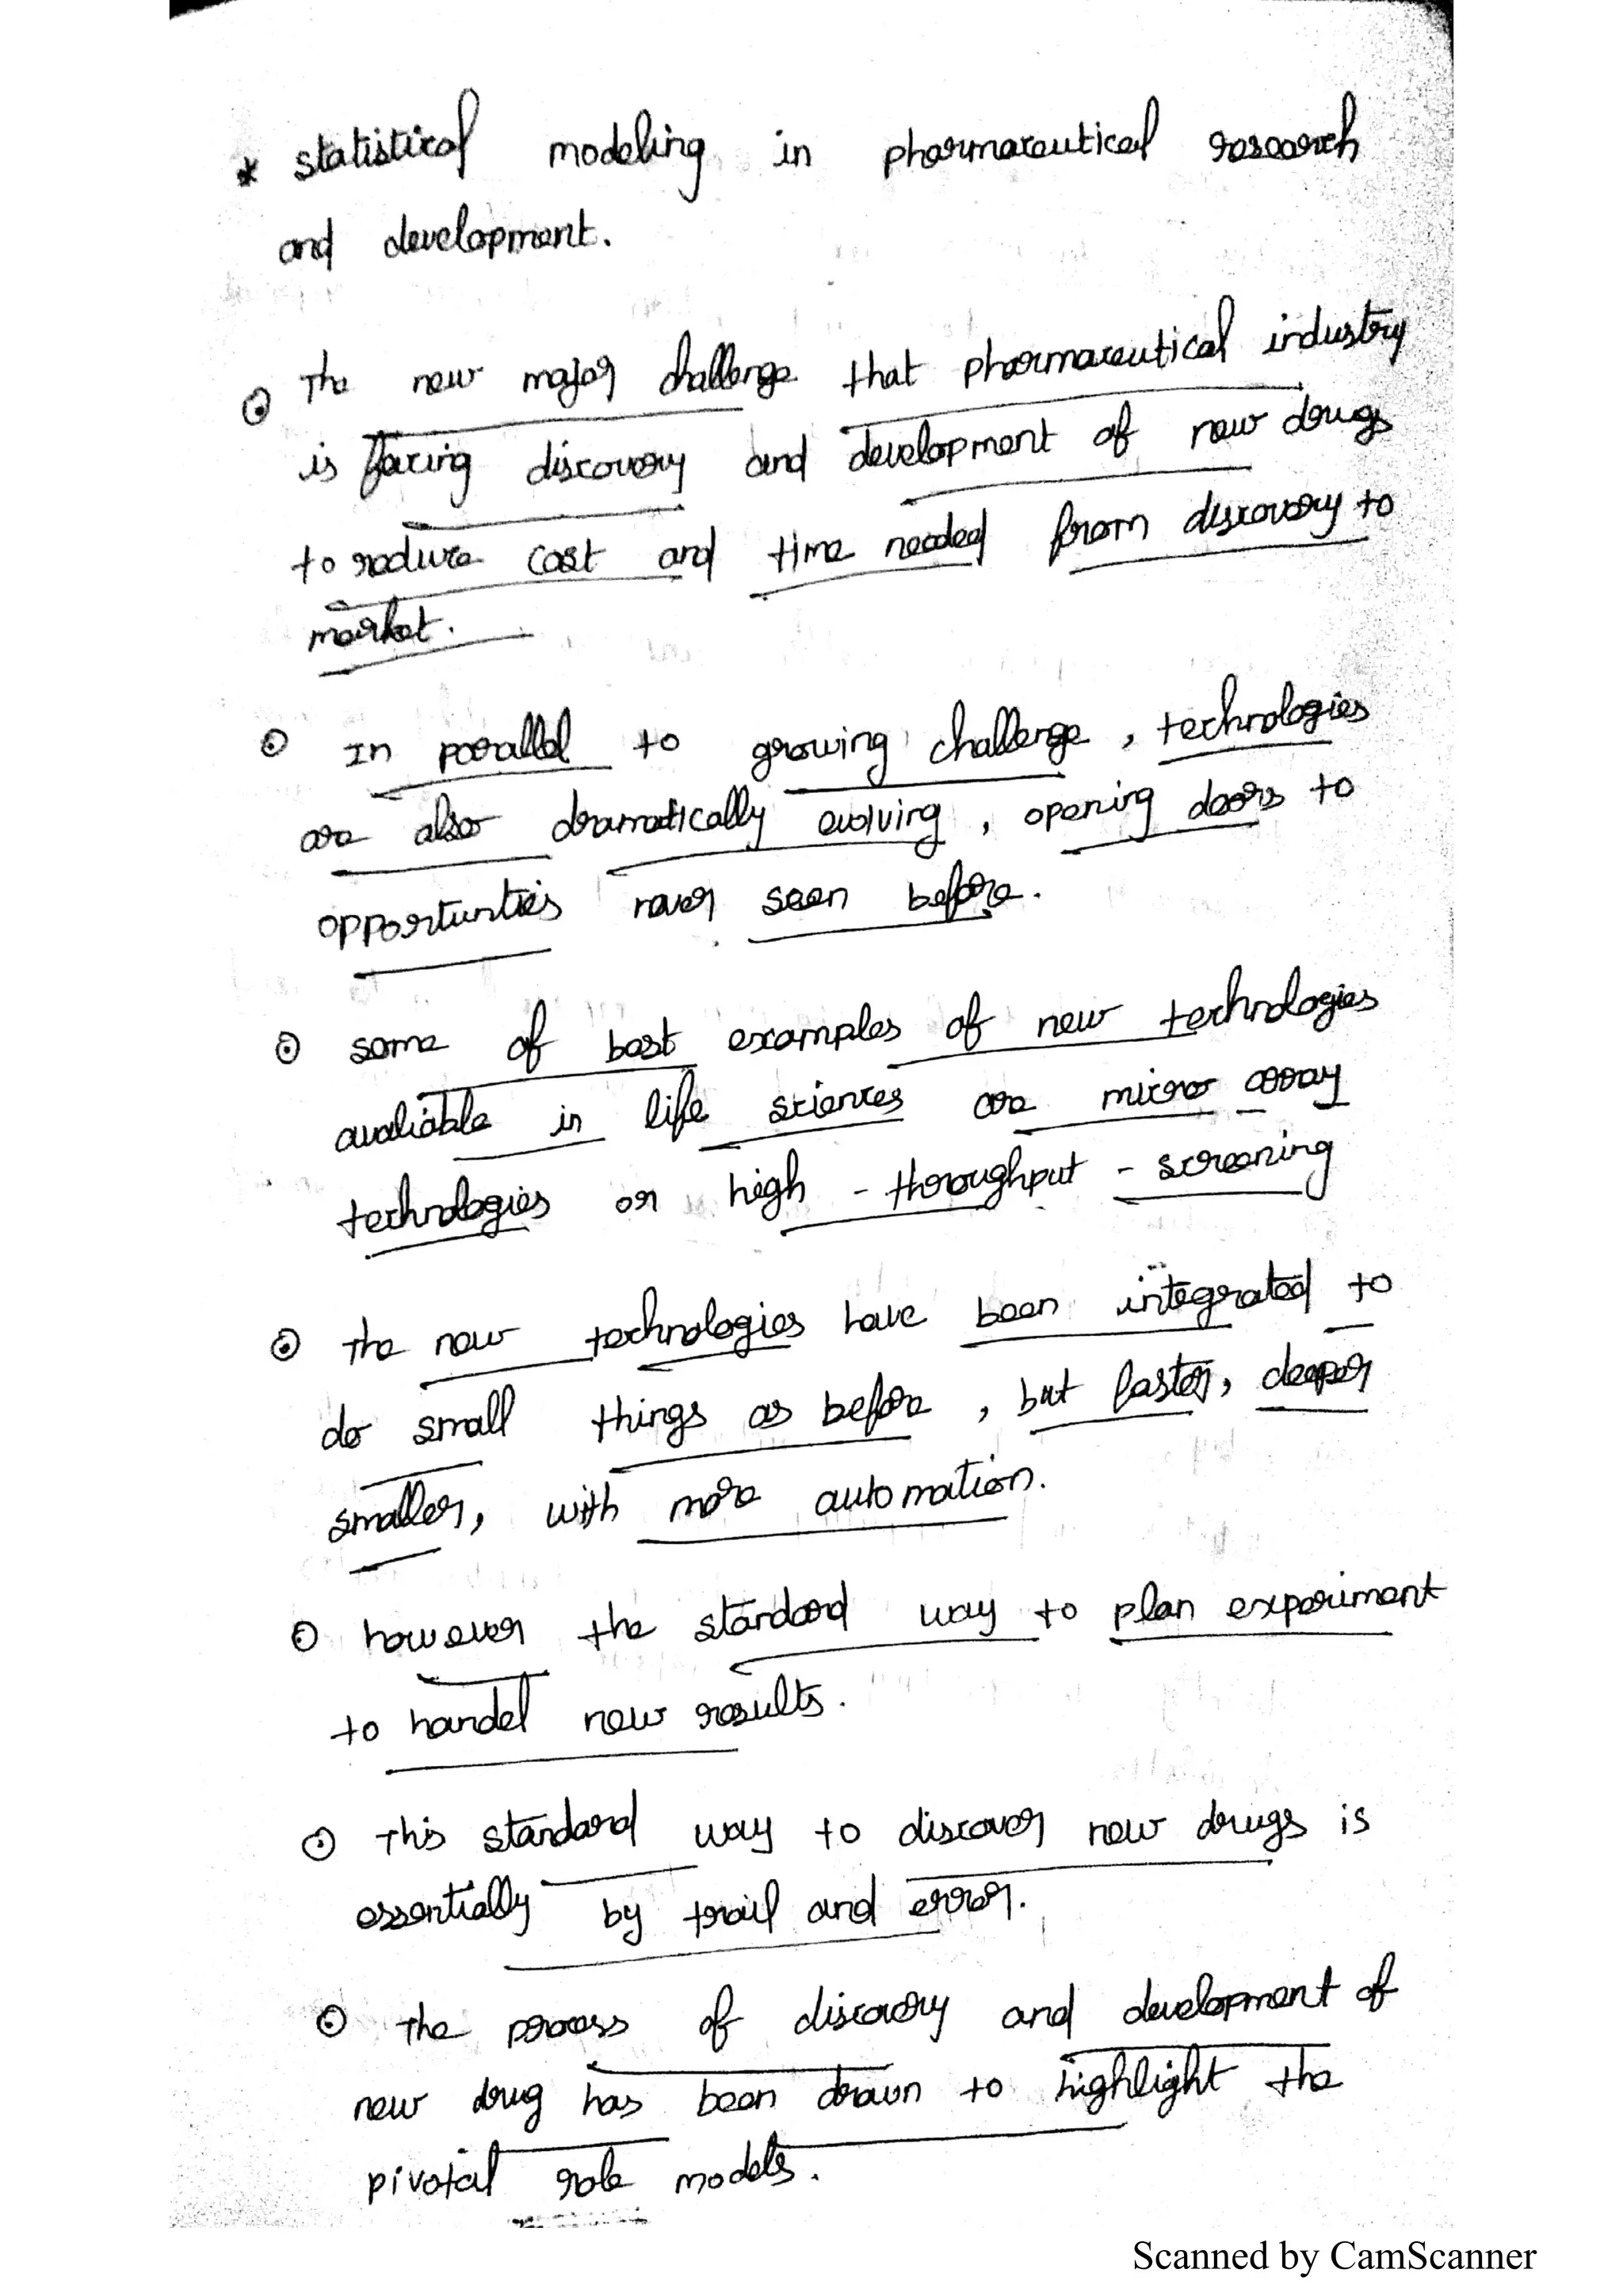 * statistical modeling in pharmaceutical research
and development.
⊙ The new major challenge that pharmaceutical industry
is facing discovery and development of new drugs
to reduce cost and time needed from discovery to
market.
⊙ In parallel to growing challenge, technologies
are also dramatically evolving, opening doors to
opportunties never seen before.
⊙ some of best examples of new technologies
avaliable in life sciences are micro array
technologies or high - throughput - screening
⊙ The new technologies have been integrated to
do small things as before, but faster, deeper
smaller, with more automation.
⊙ however the standard way to plan experiment
to handel new results.
⊙ This standard way to discover new drugs is
essentially by trail and error.
⊙ The process of discovery and development of
new drug has been drawn to highlight the
pivotal role models.
Scanned by CamScanner